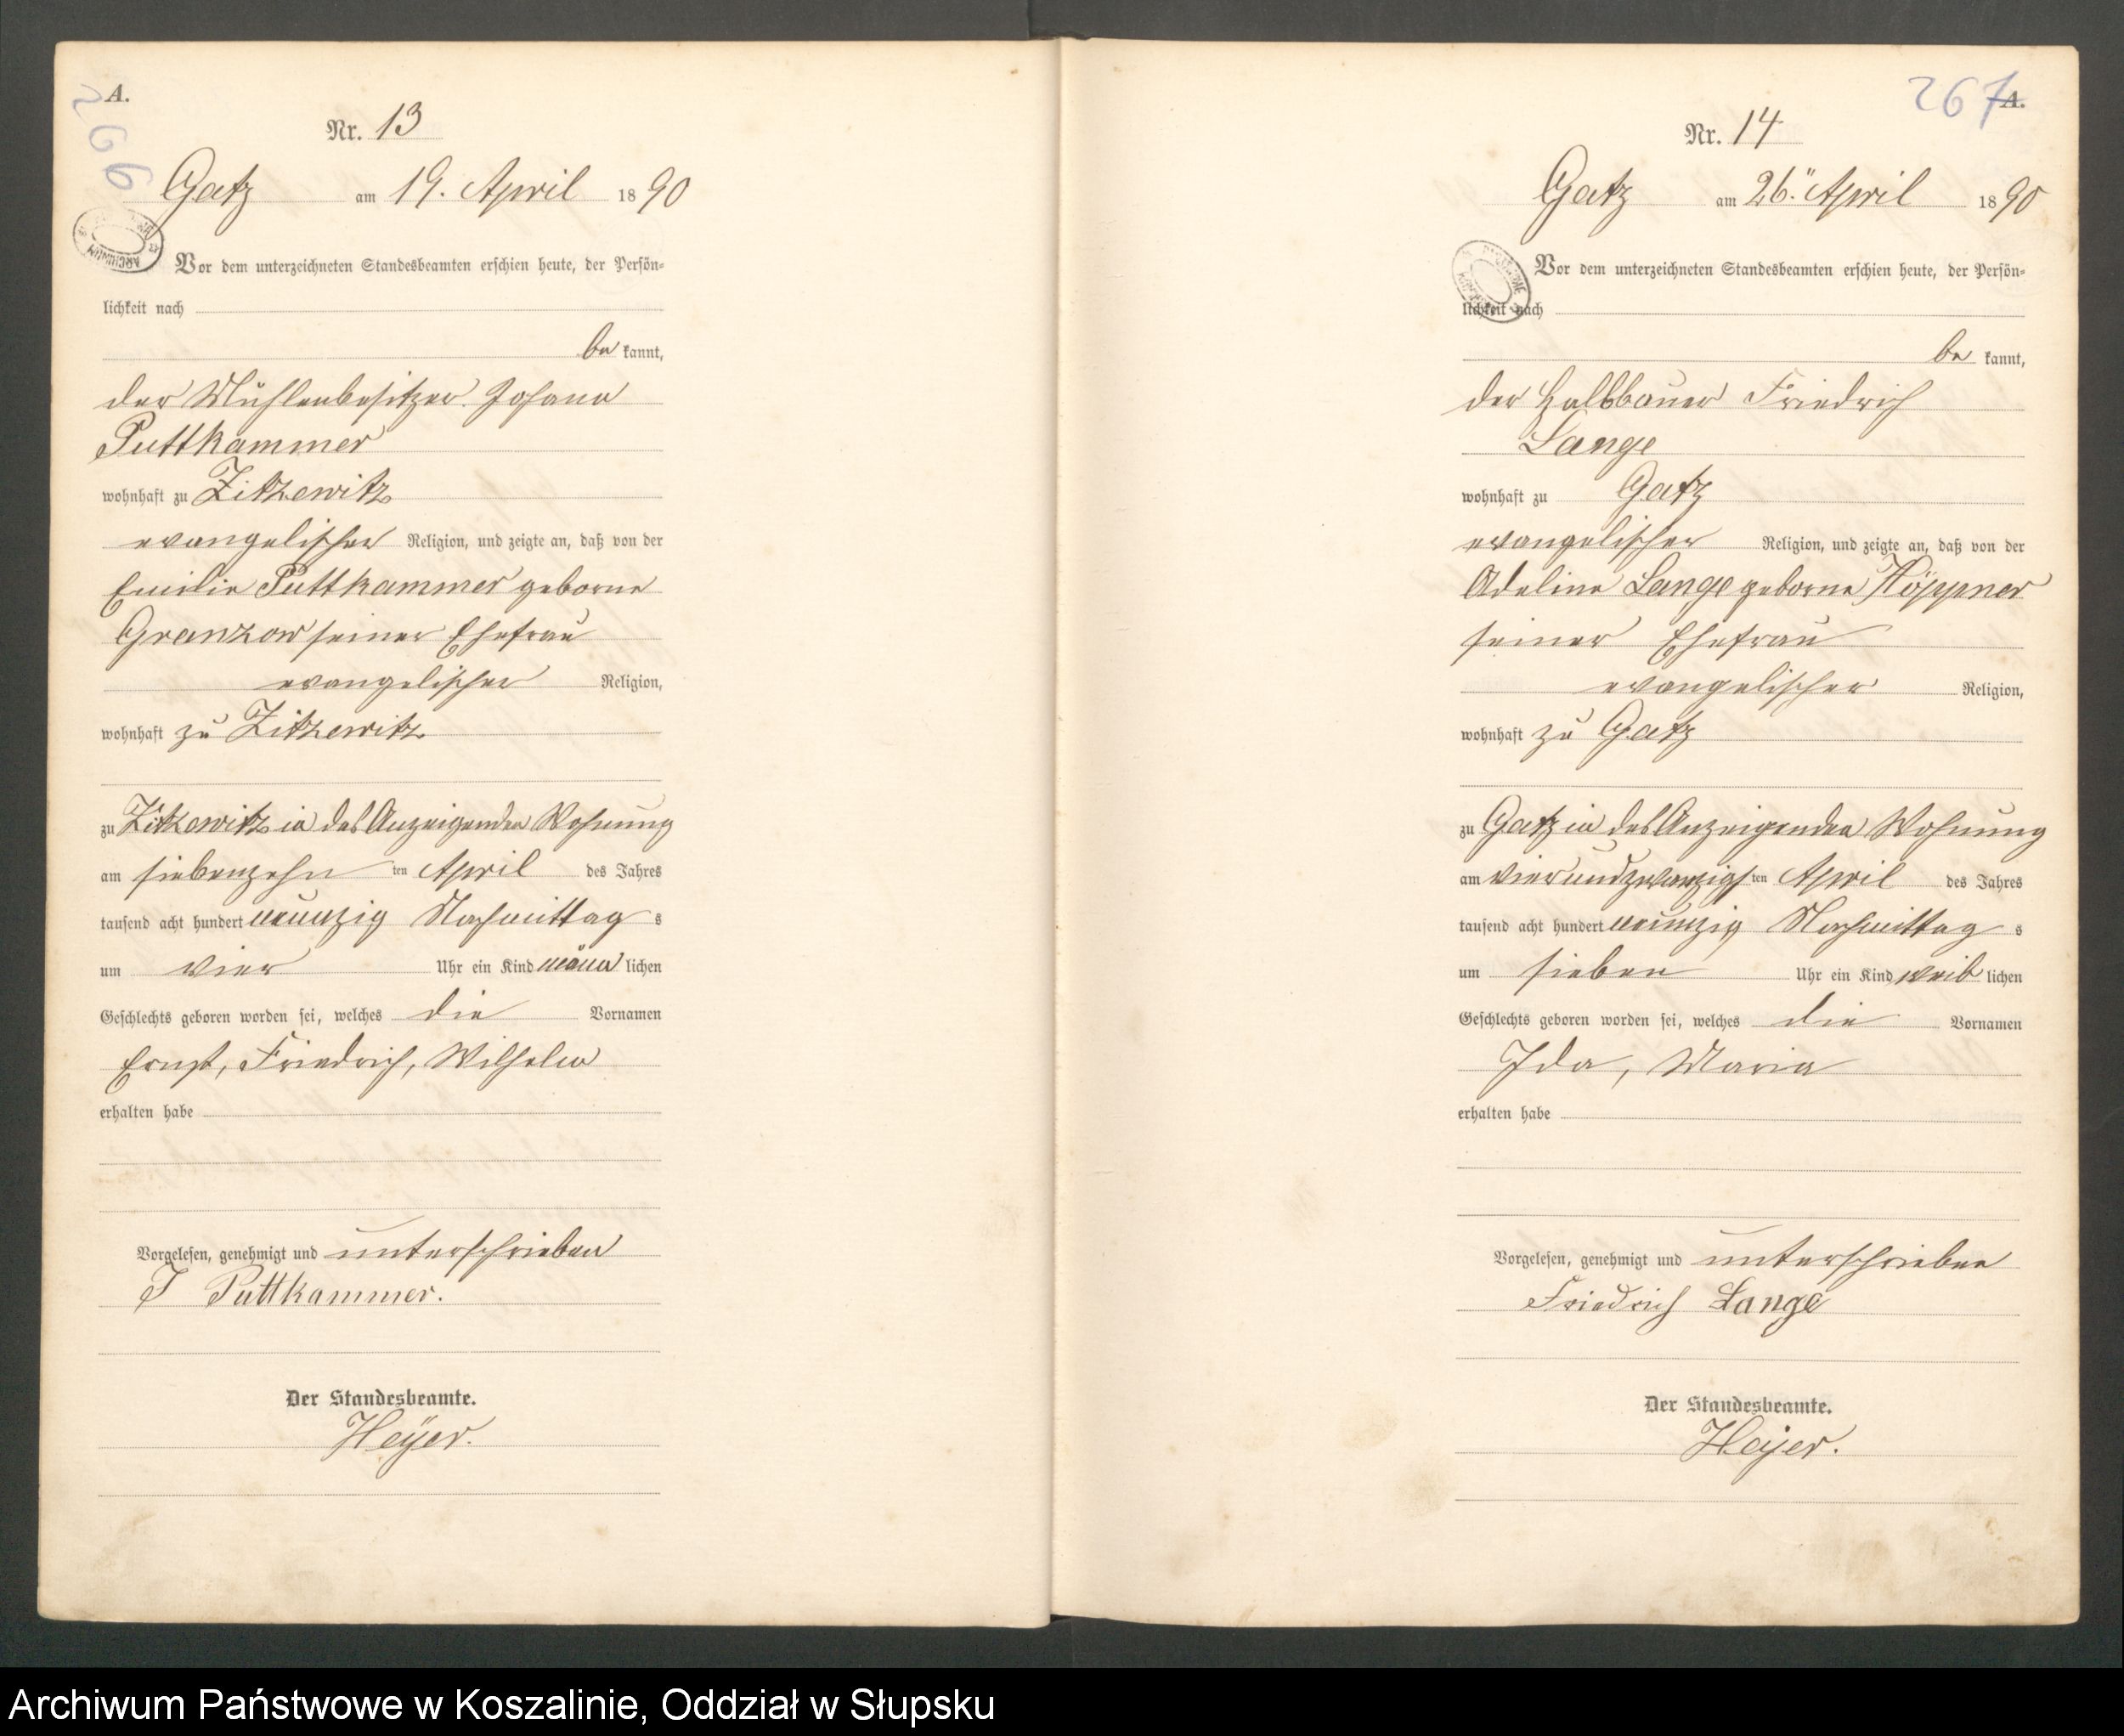 266
A.
Nr. 13
Gatz am 19. April 1890
Vor dem unterzeichneten Standesbeamten erschien heute, der Persön=
lichkeit nach
be kannt,
der Mühlenbesitzer Johann
Puttkammer
wohnhaft zu Zitzewitz
evangelischer Religion, und zeigte an, daß von der
Emilie Puttkammer geborne
Granzow seiner Ehefrau
evangelischer Religion,
wohnhaft zu Zitzewitz
zu Zitzewitz in des Anzeigenden Wohnung
am siebenzehn ten April des Jahres
tausend acht hundert neunzig Nachmittag s
um vier Uhr ein Kind männ lichen
Geschlechts geboren worden sei, welches die Vornamen
Ernst, Friedrich, Wilhelm
erhalten habe
Vorgelesen, genehmigt und unterschrieben
J Puttkammer.
Der Standesbeamte.
Heÿer.
267
A.
Nr. 14
Gatz am 26. April 1890
Vor dem unterzeichneten Standesbeamten erschien heute, der Persön=
lichkeit nach
be kannt,
der Halbbauer Friedrich
Lange
wohnhaft zu Gatz
evangelischer Religion, und zeigte an, daß von der
Adeline Lange geborne Höppner
seiner Ehefrau
evangelischer Religion,
wohnhaft zu Gatz
zu Gatz in des Anzeigenden Wohnung
am vierundzwanzigs ten April des Jahres
tausend acht hundert neunzig Nachmittag s
um sieben Uhr ein Kind weib lichen
Geschlechts geboren worden sei, welches die Vornamen
Ida, Maria
erhalten habe
Vorgelesen, genehmigt und unterschrieben
Friedrich Lange
Der Standesbeamte.
Heÿer.
Archiwum Państwowe w Koszalinie, Oddział w Słupsku